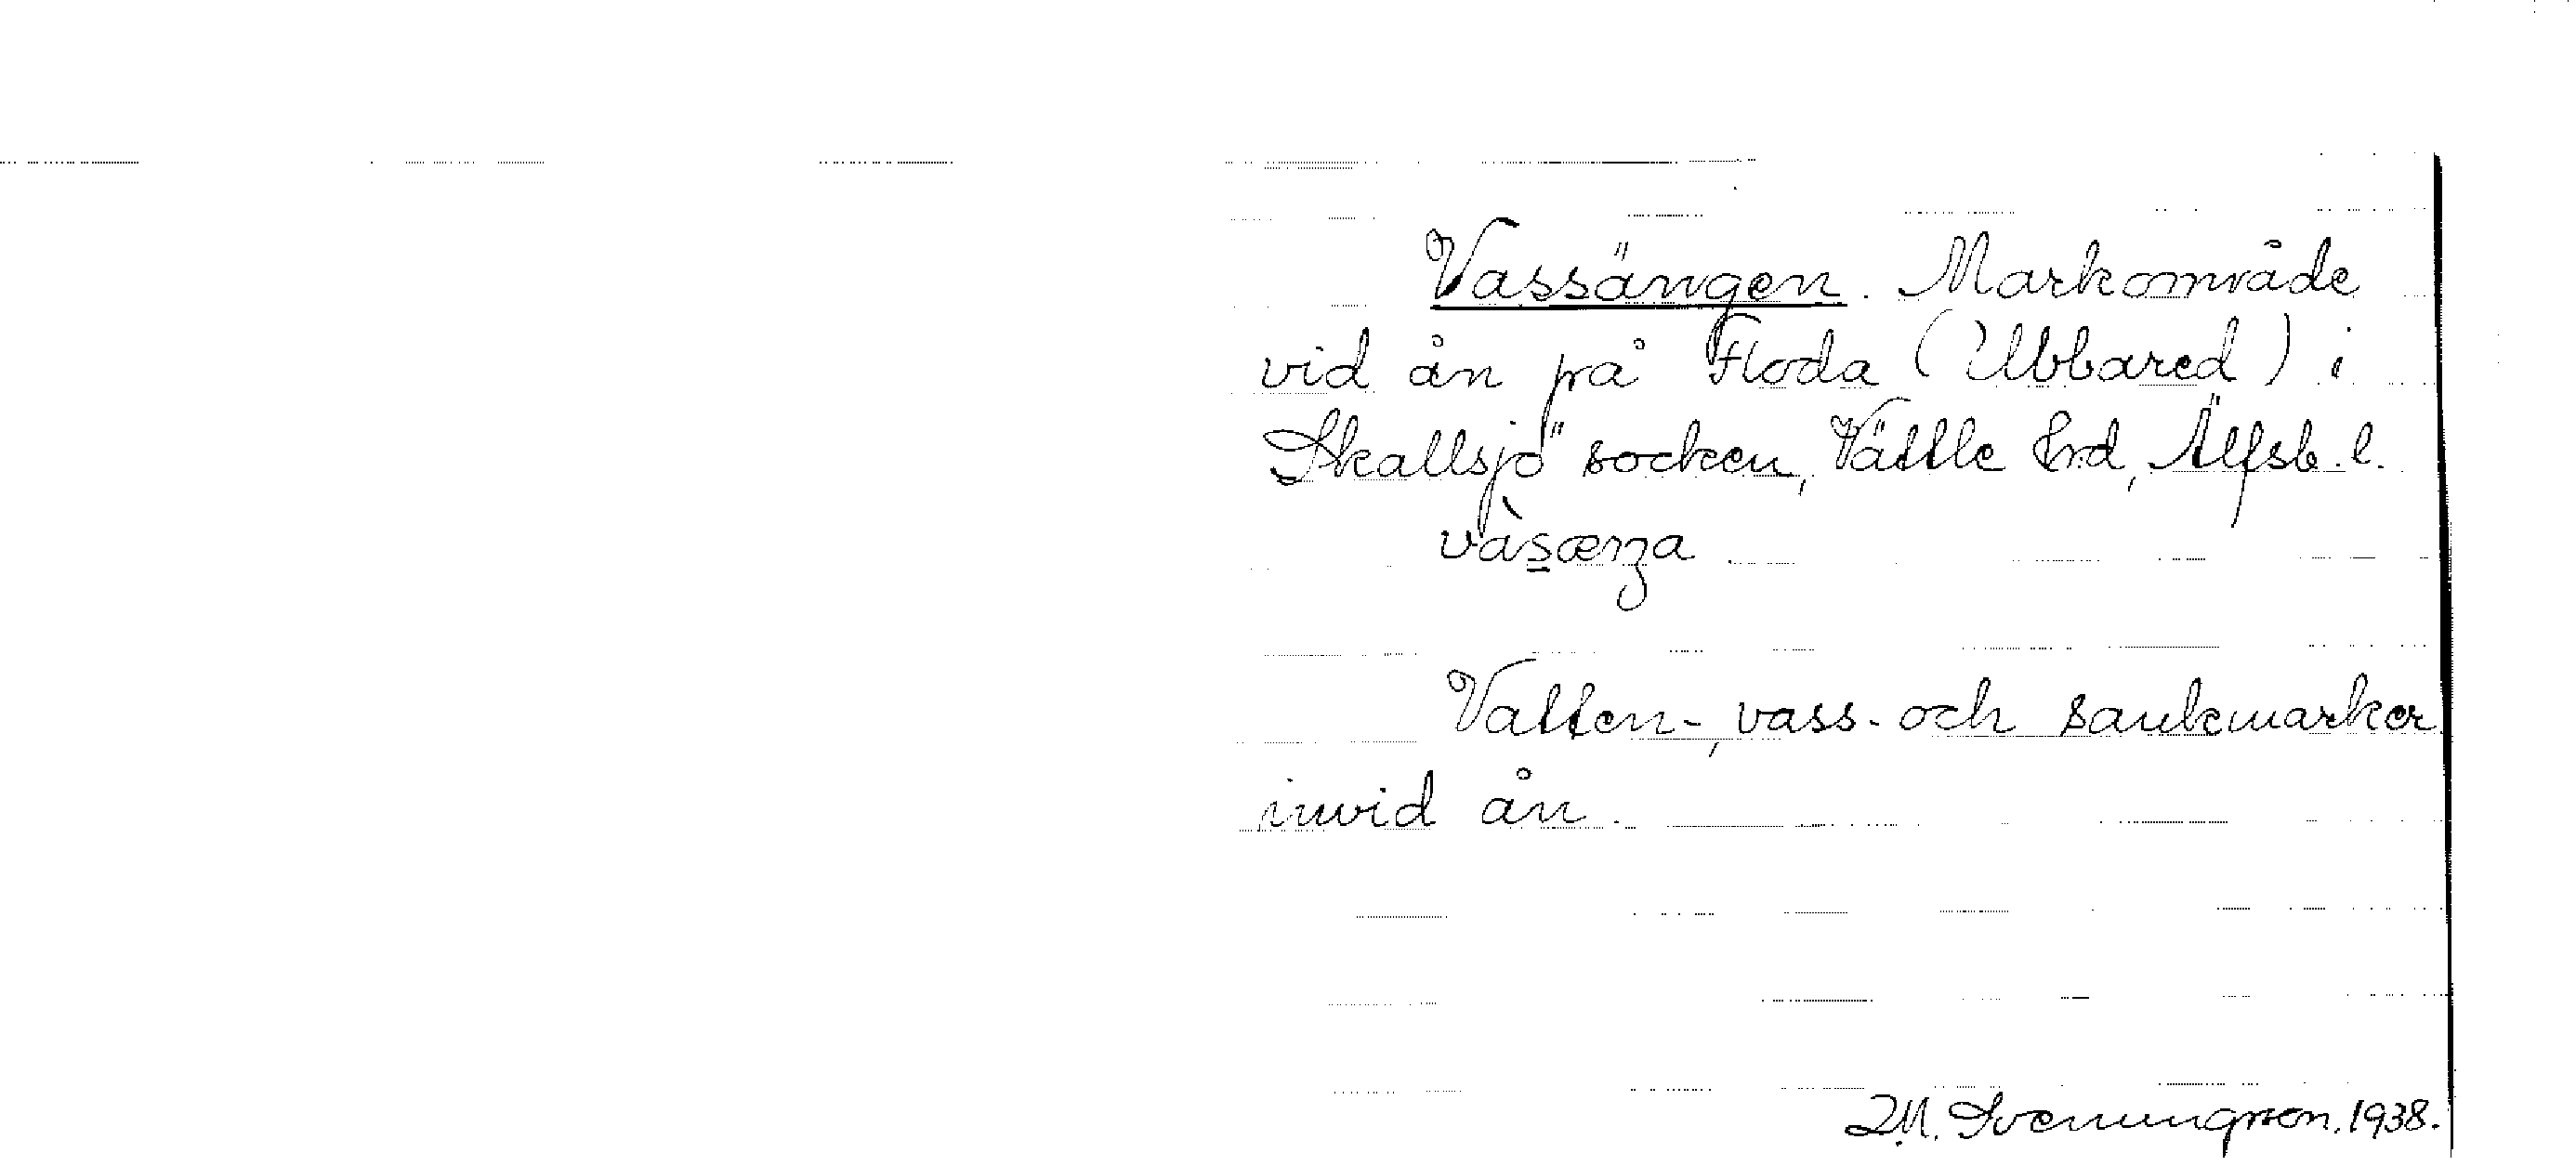 Vassängen. Markområde
vid ån på Floda (Ubbared) i
Skallsjö socken, Vättle hrd, Älfsb. l.
vàsæŋa
Vatten-, vass- och sankmarker
invid ån.
D.M. Svenungsson. 1938.